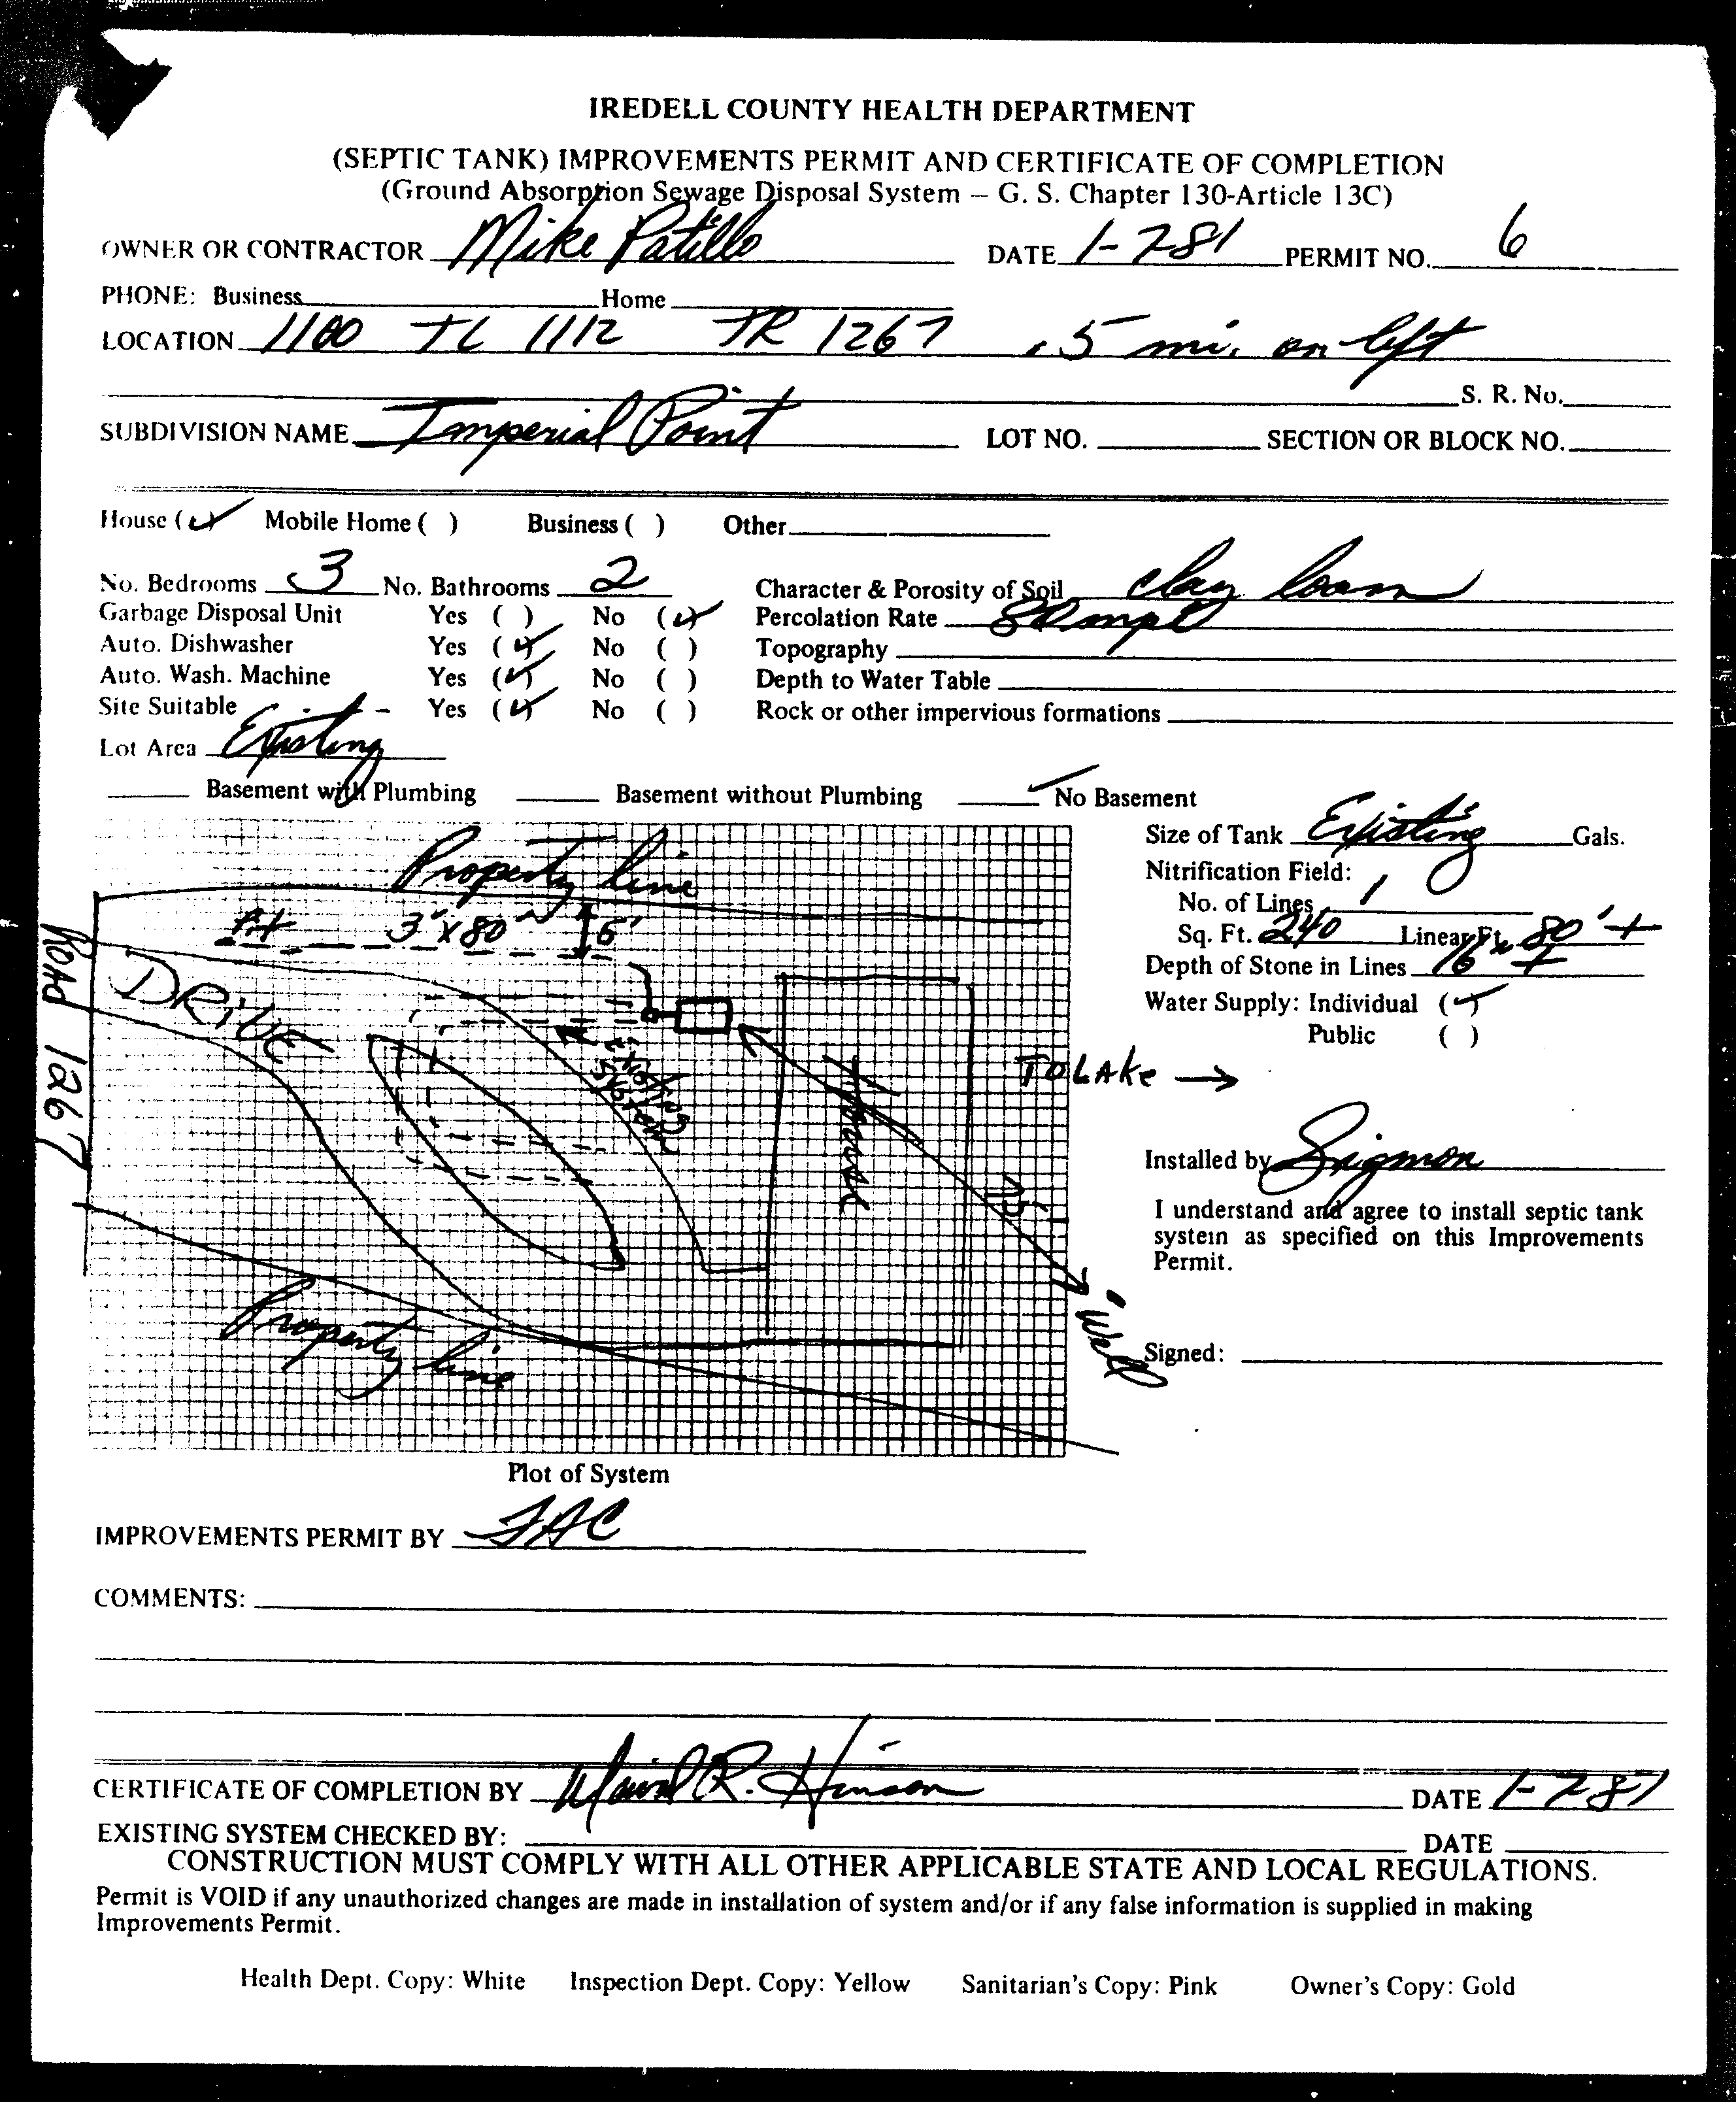 IREDELL COUNTY HEALTH DEPARTMENT
(SEPTIC TANK) IMPROVEMENTS PERMIT AND CERTIFICATE OF COMPLETION
(Ground Absorption Sewage Disposal System – G. S. Chapter 130-Article 13C)
OWNER OR CONTRACTOR Mike Patillo DATE 1-7-81 PERMIT NO. 6
PHONE: Business Home
LOCATION 1100 TL 1112 TR 1267 .5 mi. on left
S. R. No.
SUBDIVISION NAME Imperial Point LOT NO. SECTION OR BLOCK NO.
House (✓) Mobile Home ( ) Business ( ) Other
No. Bedrooms 3 No. Bathrooms 2 Character & Porosity of Soil clay loam
Garbage Disposal Unit Yes ( ) No (✓) Percolation Rate 80 mpi
Auto. Dishwasher Yes (✓) No ( ) Topography
Auto. Wash. Machine Yes (✓) No ( ) Depth to Water Table
Site Suitable - Yes (✓) No ( ) Rock or other impervious formations
Lot Area Existing
Basement with Plumbing Basement without Plumbing ✓ No Basement
Size of Tank Existing Gals.
Nitrification Field:
No. of Lines 1
Sq. Ft. 240 Linear Ft. 80' +
Depth of Stone in Lines 16" +
Water Supply: Individual (✓)
Public ( )
Property line
3' x 80' 6'
Road 1267
Drive
Existing System
House
75'
Well
To Lake →
Property line
Installed by Sigmon
I understand and agree to install septic tank
system as specified on this Improvements
Permit.
Signed:
Plot of System
IMPROVEMENTS PERMIT BY
COMMENTS:
CERTIFICATE OF COMPLETION BY R. Hinson DATE 1-7-81
EXISTING SYSTEM CHECKED BY: DATE
CONSTRUCTION MUST COMPLY WITH ALL OTHER APPLICABLE STATE AND LOCAL REGULATIONS.
Permit is VOID if any unauthorized changes are made in installation of system and/or if any false information is supplied in making
Improvements Permit.
Health Dept. Copy: White Inspection Dept. Copy: Yellow Sanitarian's Copy: Pink Owner's Copy: Gold